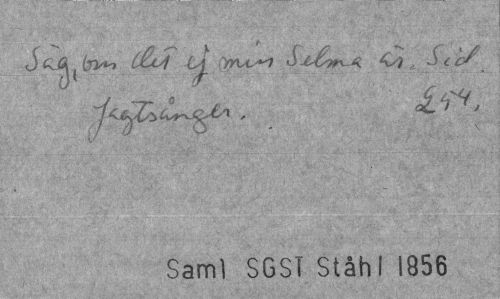 Säg, om det ej min Selma är. Sid.
Jagtsånger. 254.
Saml SGST Ståhl 1856